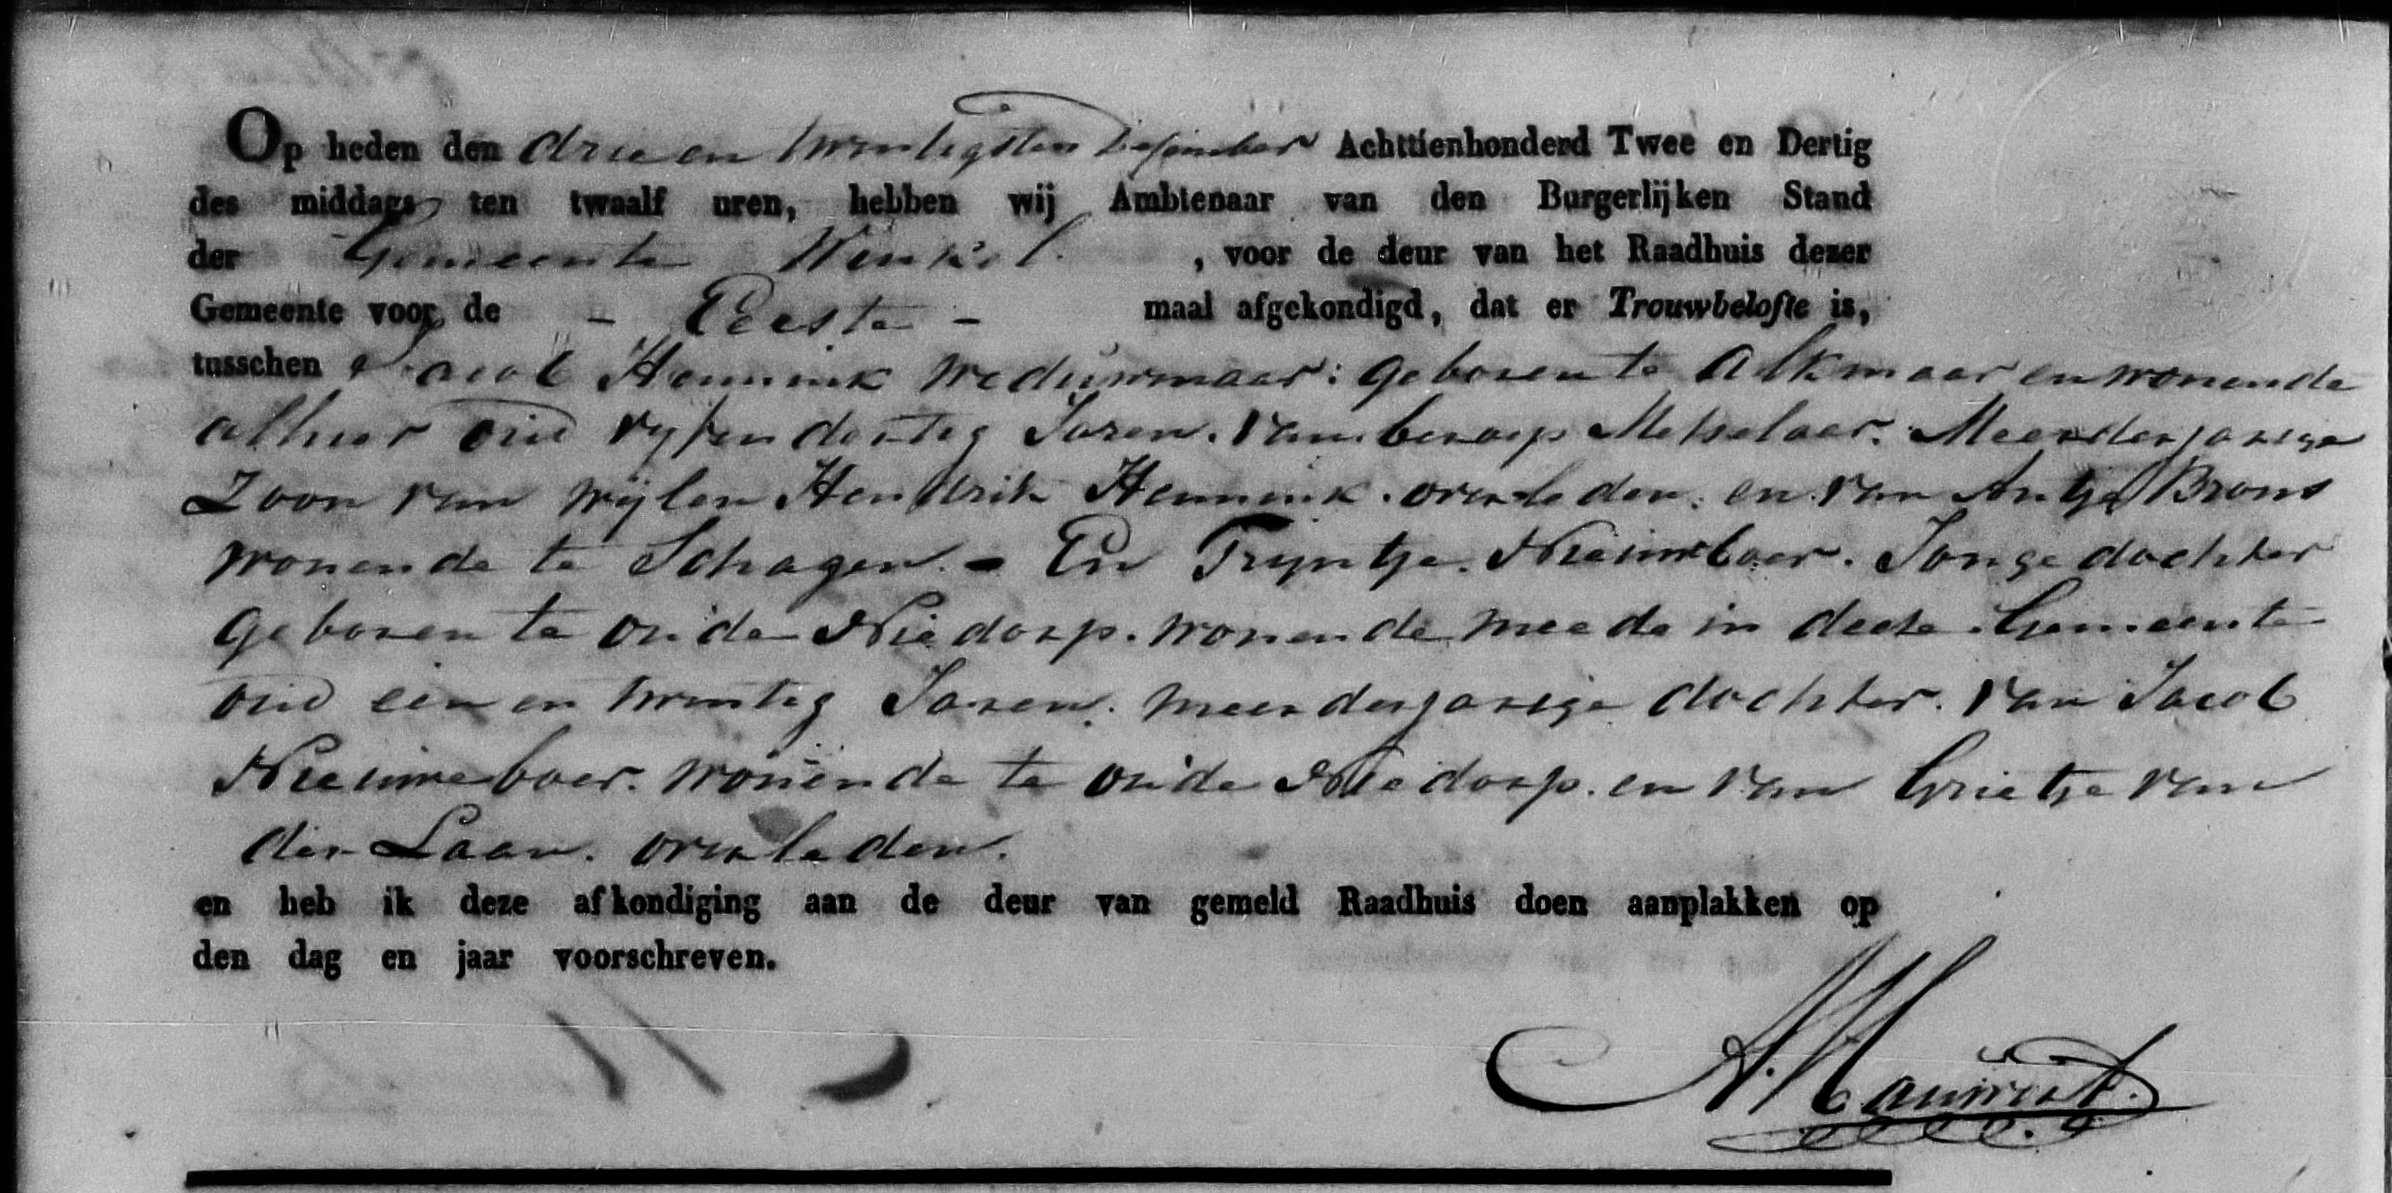 Op heden den drie en twintigsten December Achttienhonderd Twee en Dertig
des middags ten twaalf uren, hebben wij Ambtenaar van den Burgerlijken Stand
der Gemeente Winkel , voor de deur van het Raadhuis dezer
Gemeente voor de - Eerste - maal afgekondigd, dat er Trouwbelofte is,
tusschen Jacob Hennink weduwnaar: geboren te Alkmaar en wonende
alhier oud vyf en dertig Jaren. van beroep Metselaar. Meerderjarige
Zoon van wijlen Hendrik Hennink. overleden. en van Antje Brons
wonende te Schagen. - En Tryntje Nieuweboer. Jonge dochter
geboren te oude Niedorp. wonende meede in deese Gemeente
oud een en twintig Jaren. meerderjarige dochter. van Jacob
Nieuweboer. wonende te oude Niedorp. en van Grietje van
der Laan. overleden.
en heb ik deze afkondiging aan de deur van gemeld Raadhuis doen aanplakken op
den dag en jaar voorschreven.